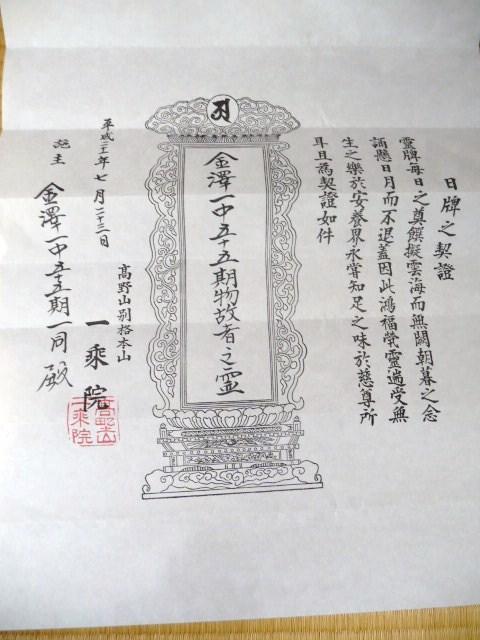 日牌之契證
靈牌每日之奠饌擬雲海而無闕朝暮之念
誦懸日月而不退蓋因此鴻福煢靈遄受無
生之樂於安養界永嘗知足之味於慈尊所
耳且為契證如件
金澤一中五十五期物故者之靈
高野山別格本山
一乘院
平成二十一年七月二十三日
施主 金澤一中五十五期一同殿
高野山
一乘院